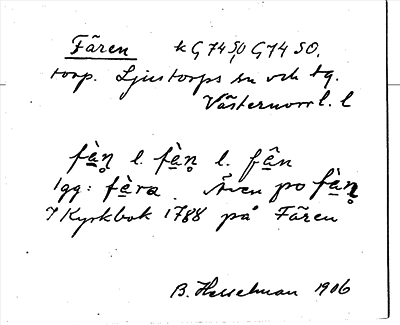 Fären k G 74 SO, G 74 SO.
torp. Ljustorps sn och tg.
Västernorrl. l
fà̱n̥ l. fè̱n̥ l. fâ̱n
1gg: fè̱ra. Även po fà̱n̥
I Kyrkbok 1788 på Fären
B. Hesselman 1906